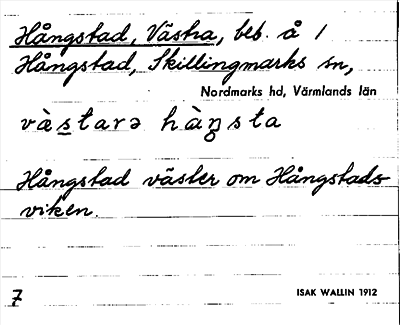 Hångstad, Västra, beb. å 1
Hångstad, Skillingmarks sn,
Nordmarks hd, Värmlands län
vὰstarə hὰŋsta
Hångstad väster om Hångstads-
viken.
7
ISAK WALLIN 1912